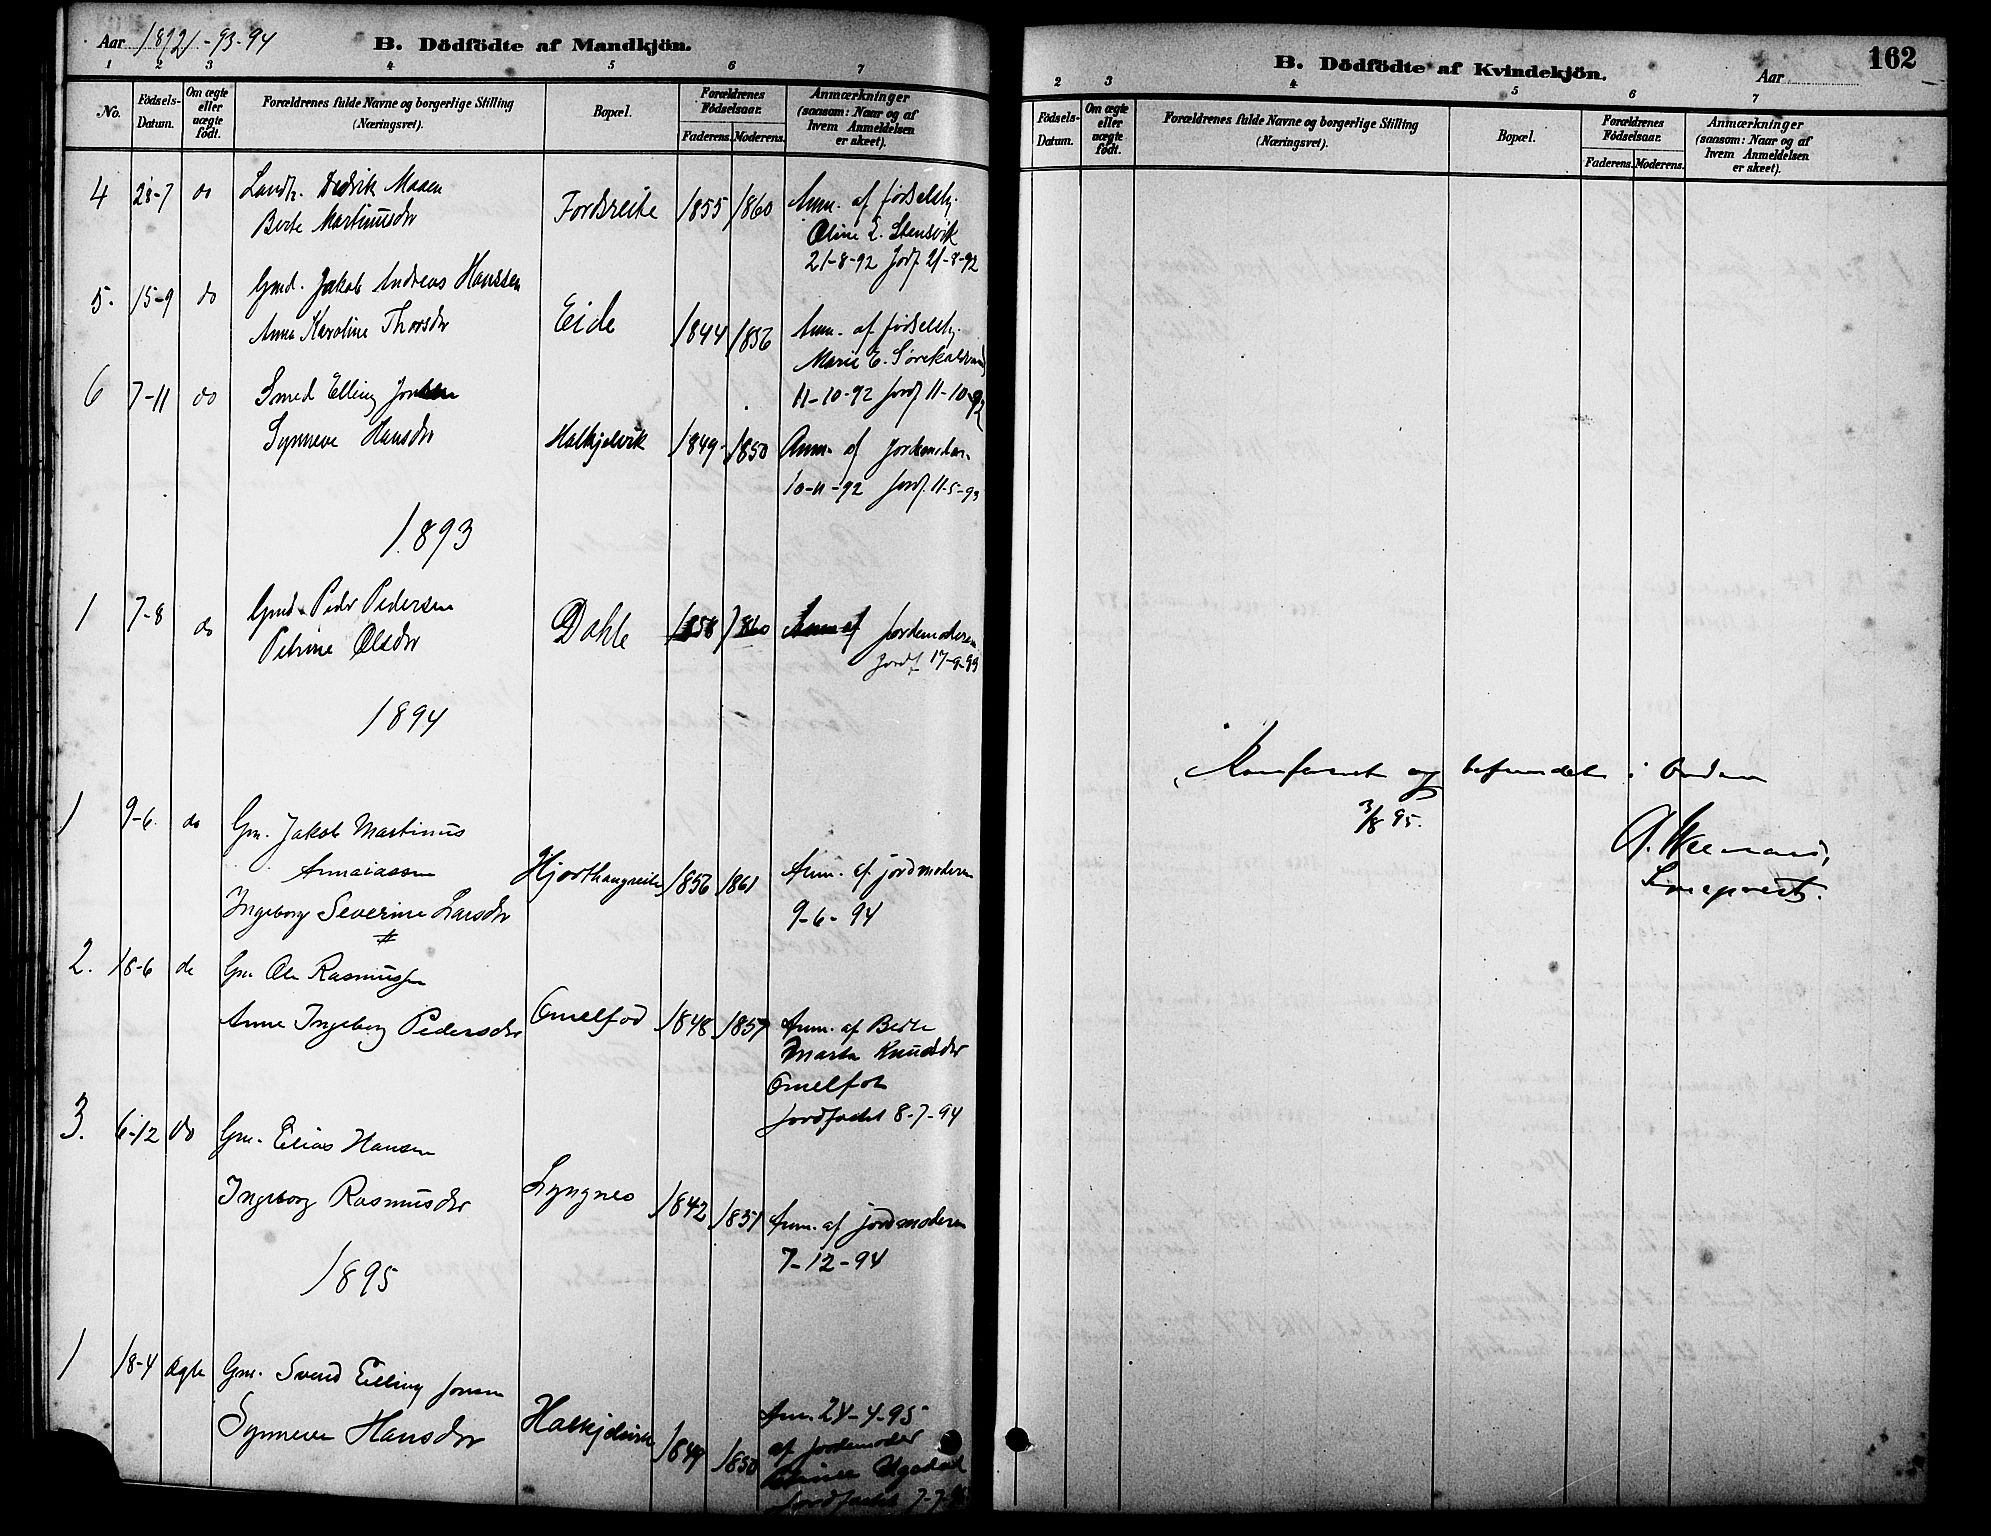 Aar 1892-93-94
B. Dödfödte af Mandkjön.
1 2 3 4 5 6 7
No. Födsels-Datum. Om ægte eller uægte født. Forældrenes fulde Navne og borgerlige Stilling (Næringsvei). Bopæl. Forældrenes Födselsaar. Faderens. Moderens. Anmærkninger (saasom: Naar og af hvem Anmeldelsen er skeet).
4 28-7 do Landh. Didrik Maaen Fordsreite 1855 1860 Anm. af fødselshj.
Berte Martinusdr Oline E. Stensvik
21-8-92 Jordf 21-8-92
5. 15-9 do Gmd. Jakob Andreas Hanssen
Anna Karoline Thorsdr Eide 1844 1856 Anm. af fødselshj.
Marie E.
6 7-11 do Smed Elling Jonsen 11-10-92 Jordf 11-10-92
Synneve Hansdr Halkjelsvik 1849 1850 Anm. af Jordemoderen
10-11-92 Jordf. 11-5-93
1893
1 7-8 do Gmd. Peder Pedersen Dahle 1858 1860 Anm af Jordemoderen
Petrine Olsdr Jordf 17-9-93
1894
1 9-6. do Gm. Jakob Martinus
Annaniassen Hjorthaugreiten 1856 1861 Anm. af jordmoderen
Ingeborg Severine Larsdr 9-6-94
2. 18-6 do Gm Ole Rasmussen
Anne Ingeborg Pedersdr Omelfod 1848 1857 Anm. af Berte
Marta Knudsdr
Omelfot
jordfæstet 8-7-94
3. 6-12 do Gm. Elias Hansen
Ingeborg Rasmusdr Lyngnes 1842 1851 Anm. af jordmoderen
7-12-94
1895
1 18-4 ægte Gm. Svend Elling Jonsen
Synneve Hansdr Halkjelsvik 1849 1850 Anm. 24-4-95
af Jordemoder
Ugedal
jordfæstet
162
B. Dödfödte af Kvindekjön.
Aar
2 3 4 5 6 7
Födsels-Datum. Om ægte eller uægte født. Forældrenes fulde Navne og borgerlige Stilling (Næringsvei). Bopæl. Forældrenes Födselsaar. Faderens. Moderens. Anmærkninger (saasom: Naar og af hvem Anmeldelsen er skeet).
Konfereret og befundet i Orden
3/8 95.
Sogneprest.